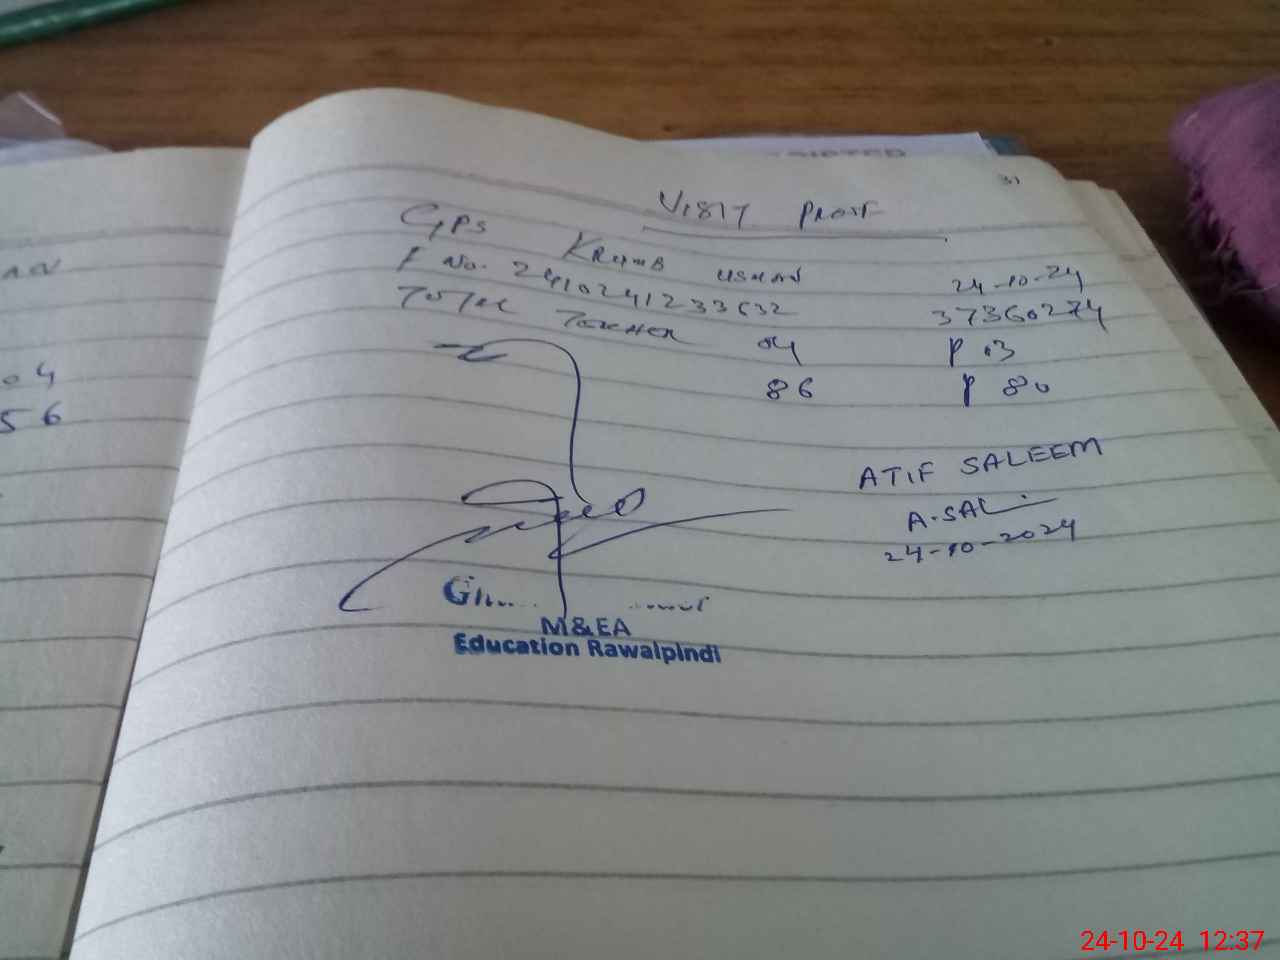 31
VISIT PROOF
GPS KRUMB USMAN 24-10-24
F No. 2410241233632 37360274
TOTAL TEACHER 04 P 03
86 P 80
ATIF SALEEM
A.SAL
24-10-2024
M&EA
Education Rawalpindi
04
56
24-10-24 12:37